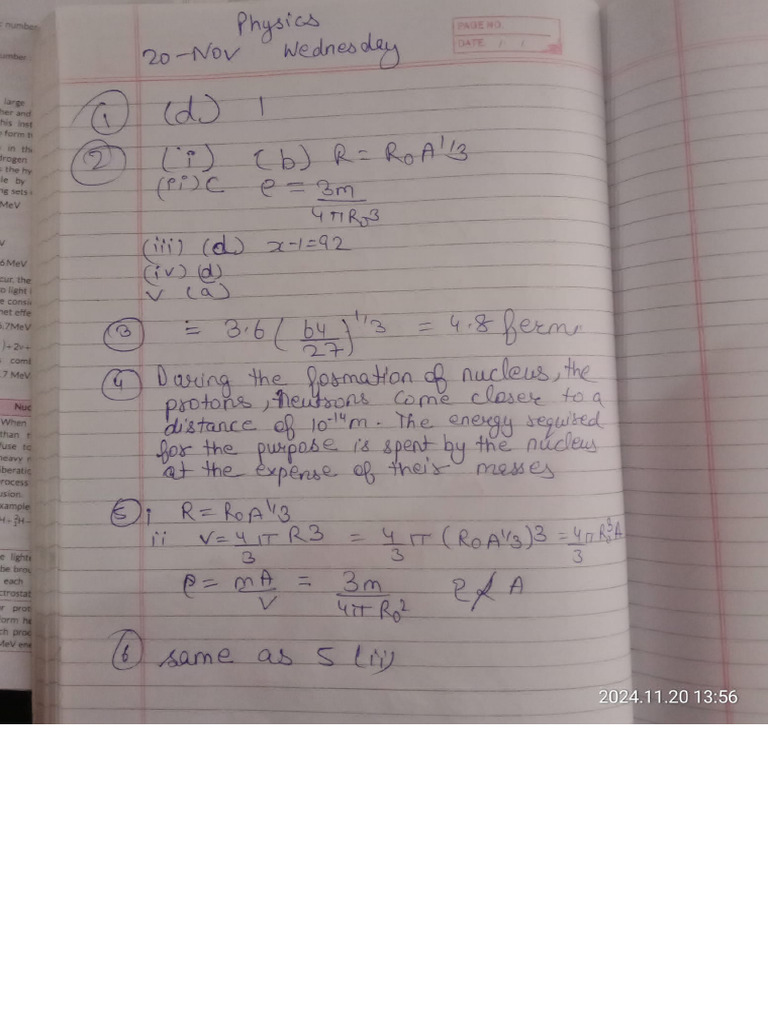 Physics
20-Nov Wednesday
PAGE NO.
DATE / /
① (d.) 1
② (i) (b) R = R₀A^1/3
(ii) C ρ = 3m / 4πR₀3
(iii) (d) x-1=92
(iv) (d)
v (a)
③ = 3.6 (64/27)^1/3 = 4.8 fermi
④ During the formation of nucleus, the
protons, neutrons come closer to a
distance of 10^-14 m. The energy required
for the purpose is spent by the nucleus
at the expense of their masses
⑤ i R = R₀A^1/3
ii V = 4/3 π R3 = 4/3 π (R₀A^1/3)3 = 4/3 π R₀^3 A
ρ = mA/V = 3m / 4π R₀^2 ρ ∝̸ A
⑥ same as 5 (ii)
2024.11.20 13:56
number
large
her and
his inst
in the
drogen
the hy
le by
ng sets
MeV
V
6 MeV
cur, the
o light
e consi
net effe
.7MeV
)+2ν+
comb
.7 MeV
Nuc
When
than
fuse to
heavy
liberatio
process
usion.
xample
e light
be brou
each
ctrostat
or prot
orm he
ch proc
MeV ene